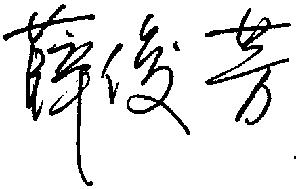 薛俊芳